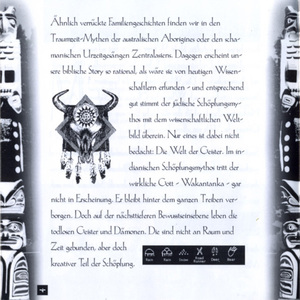 Ähnlich verrückte Familiengeschichten finden wir in den
Traumzeit-Mythen der australischen Aborigines oder den scha-
manischen Urzeitgesängen Zentralasiens. Dagegen erscheint un-
sere biblische Story so rational, als wäre sie von heutigen Wissen-
schaftlern erfunden - und entsprechend
gut stimmt der jüdische Schöpfungsmy-
thos mit dem wissenschaftlichen Welt-
bild überein. Nur eines ist dabei nicht
bedacht: Die Welt der Geister. Im in-
dianischen Schöpfungsmythos tritt der
wirkliche Gott - Wakantanka - gar
nicht in Erscheinung. Er bleibt hinter dem ganzen Treiben ver-
borgen. Doch auf der nächsttieferen Bewusstseinsebene leben die
todlosen Geister und Dämonen. Die sind nicht an Raum und
Zeit gebunden, aber doch
kreativer Teil der Schöpfung.